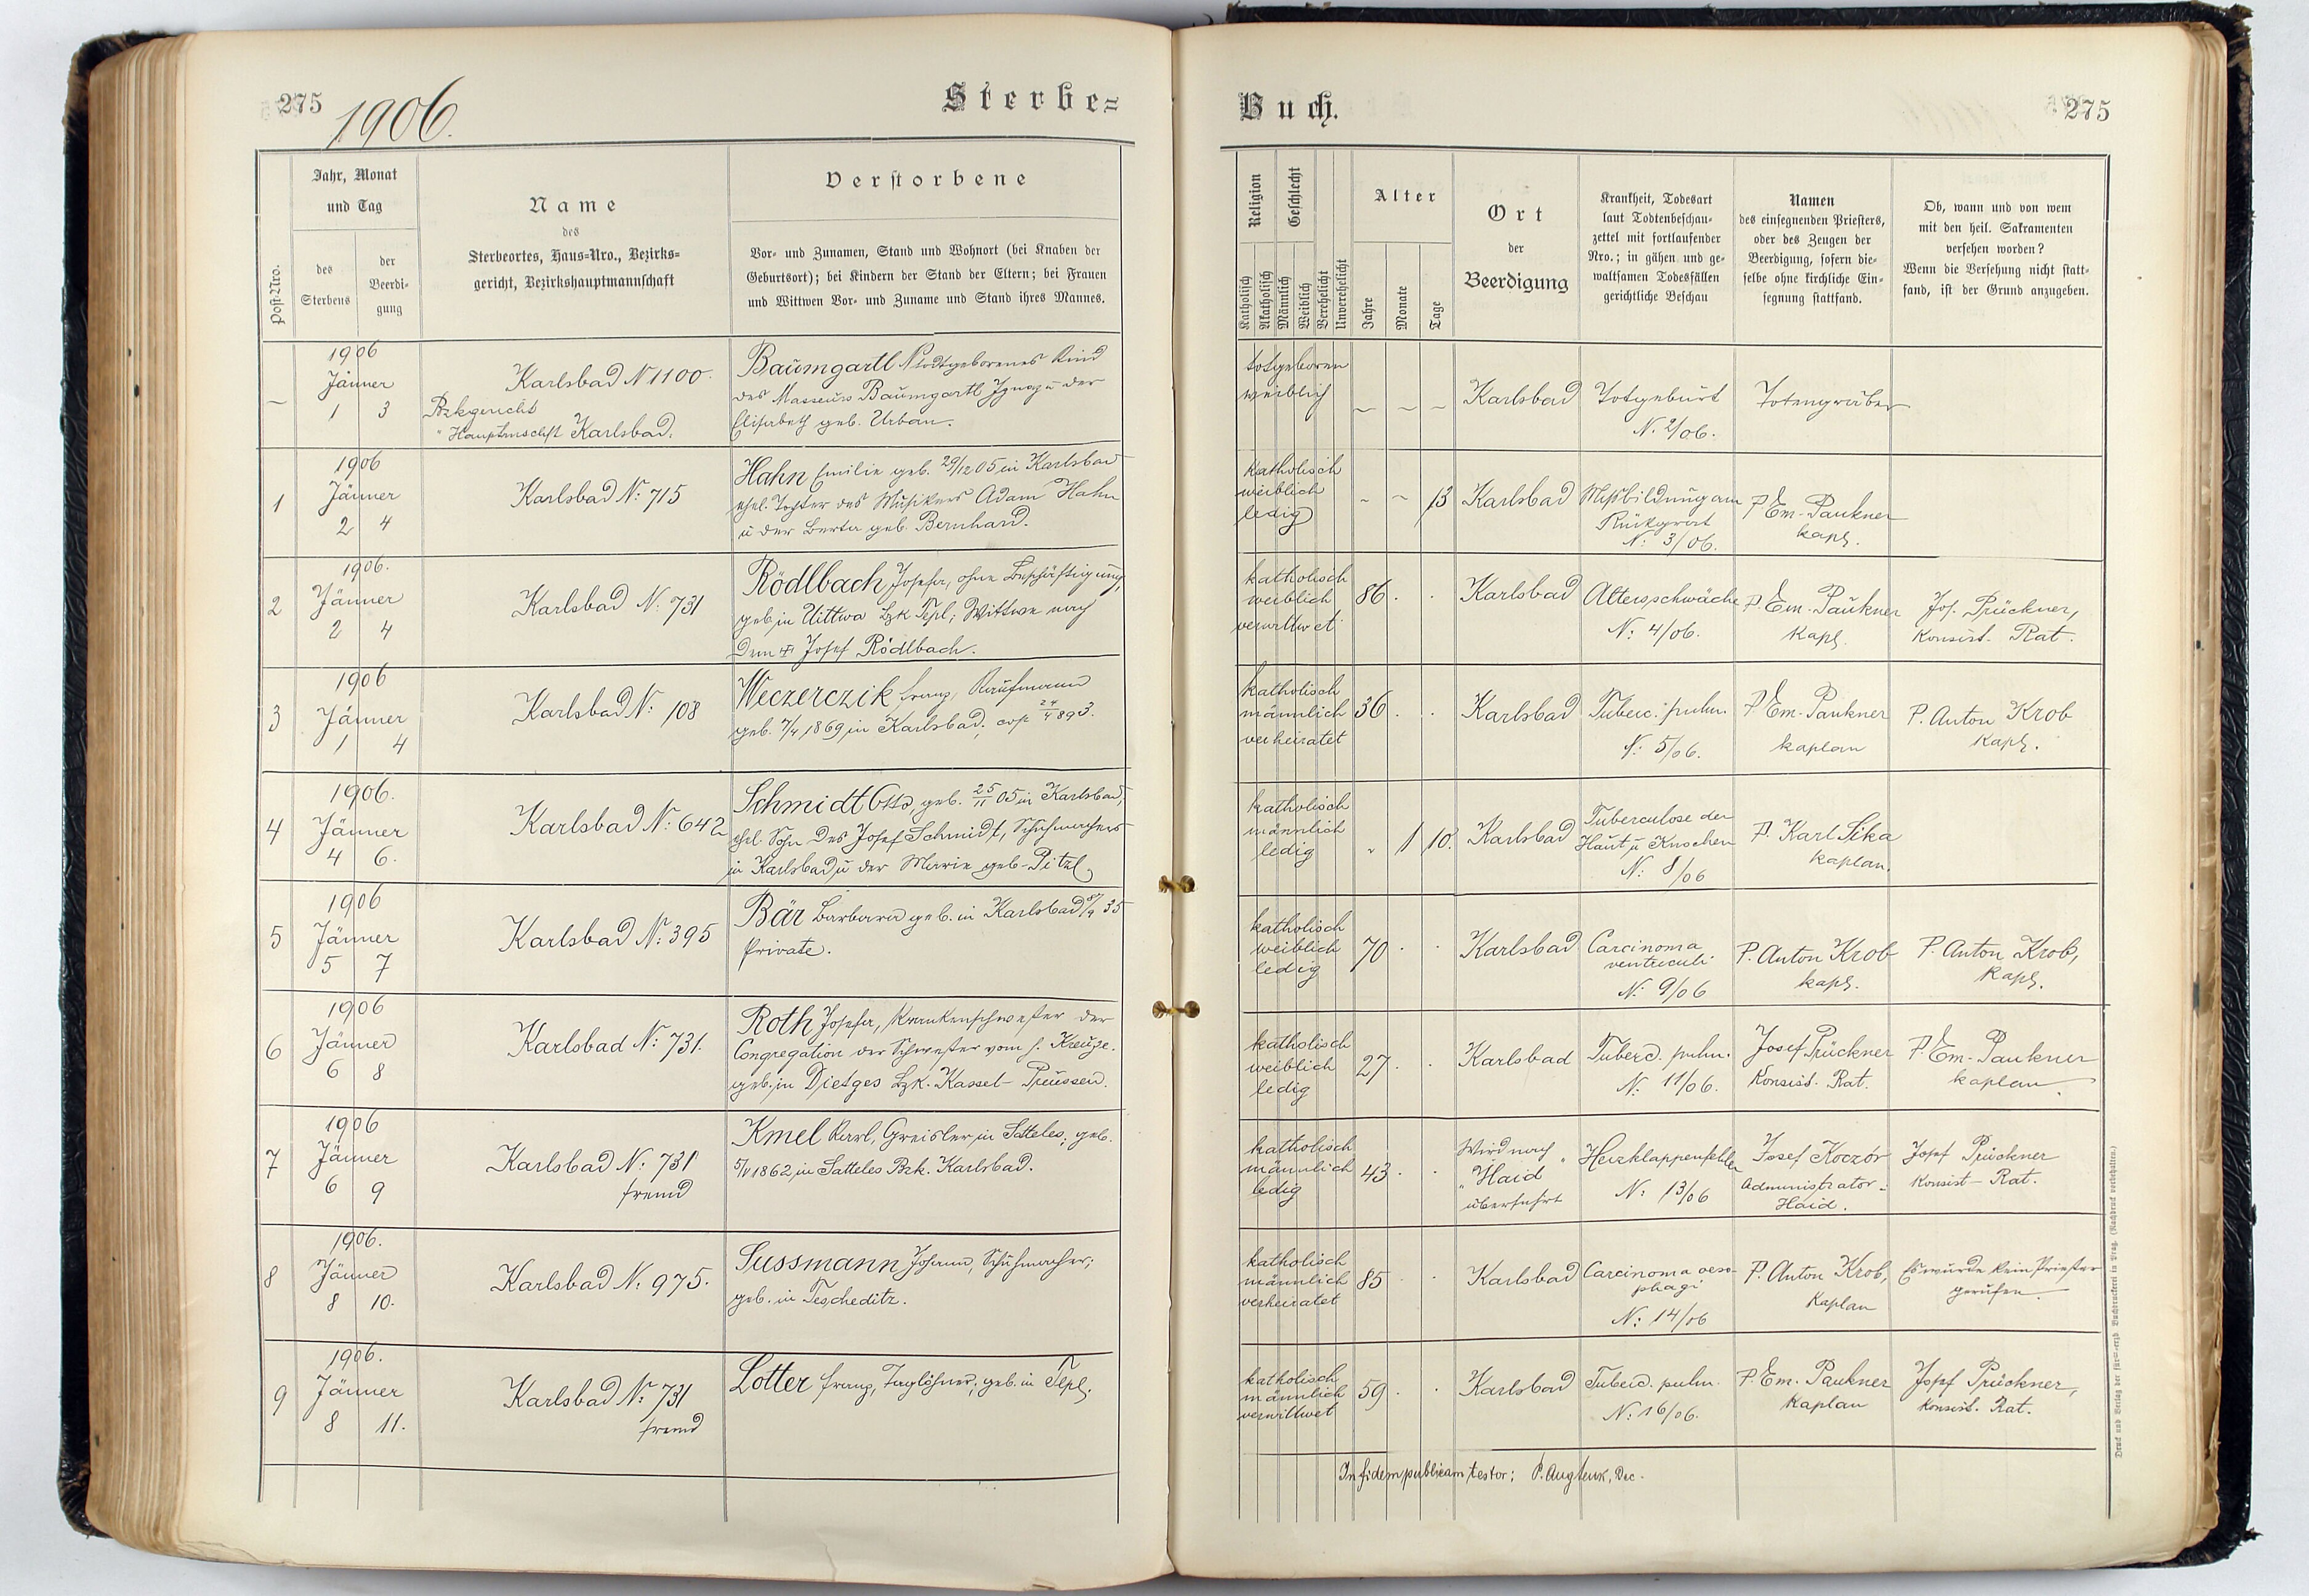 275
1906.
Sterbe=
Post-Nro.
Jahr, Monat
und Tag
des
Sterbens
der
Beerdi-
gung
Name
des
Sterbeortes, Haus-Nro., Bezirks-
gericht, Bezirkshauptmannschaft
Verstorbene
Vor- und Zunamen, Stand und Wohnort (bei Knaben der
Geburtsort); bei Kindern der Stand der Eltern; bei Frauen
und Wittwen Vor- und Zuname und Stand ihres Mannes.
1906
Jänner
1 3
Karlsbad N 1100.
Bzkgericht
" Hauptmschft Karlsbad.
Baumgartl N todtgeborenes Kind
des Masseurs Baumgartl Ignaz u der
Elisabeth geb. Urban.
1
1906
Jänner
2 4
Karlsbad N: 715
Hahn Emilie geb. 29/12 05 in Karlsbad
ehel. Tochter des Musikers Adam Hahn
u der Berta geb. Bernhard.
2
1906.
Jänner
2 4
Karlsbad N: 731
Rödlbach Josefa, ohne Beschäftigung,
geb. in Uittwa Bzk Tepl; Wittwe nach
dem Josef Rödlbach.
3
1906
Jänner
1 4
Karlsbad N: 108
Weczerczik Franz, Kaufmann
geb. 7/4 1869 in Karlsbad; cop 24/4 893.
4
1906.
Jänner
4 6.
Karlsbad N: 642
Schmidt Otto, geb. 25/11 05 in Karlsbad,
ehel. Sohn des Josef Schmidt, Schuhmachers
in Karlsbad u der Marie geb. Pitzl.
5
1906
Jänner
5 7
Karlsbad N: 395
Bär Barbara geb. in Karlsbad 35
Private.
6
1906
Jänner
6 8
Karlsbad N: 731.
Roth Josefa, Krankenschwester der
Congregation der Schwester vom h. Kreuze.
geb. in Dietges Bzk. Kassel - Preussen.
7
1906
Jänner
6 9
Karlsbad N: 731
fremd
Kmel Karl, Greisler in Satteles; geb.
1862 in Satteles Bzk. Karlsbad.
8
1906.
Jänner
8 10.
Karlsbad N: 975.
Sussmann Johann, Schuhmacher;
geb. in Tescheditz.
9
1906.
Jänner
8 11.
Karlsbad N: 731
fremd
Lotter Franz, Taglöhner; geb. in Tepl.
Buch.
275
Religion
Katholisch
Akatholisch
Geschlecht
Männlich
Weiblich
Verehelicht
Unverehelicht
Alter
Jahre
Monate
Tage
Ort
der
Beerdigung
Krankheit, Todesart
laut Todtenbeschau-
zettel mit fortlaufender
Nro.; in gähen und ge-
waltsamen Todesfällen
gerichtliche Beschau
Namen
des einsegnenden Priesters,
oder des Zeugen der
Beerdigung, sofern die-
selbe ohne kirchliche Ein-
segnung stattfand.
Ob, wann und von wem
mit den heil. Sakramenten
versehen worden?
Wenn die Versehung nicht statt-
fand, ist der Grund anzugeben.
totgeboren
weiblich
Karlsbad
Totgeburt
N. 2/06.
Totengräber
katholisch
weiblich
ledig
13
Karlsbad
Missbildung am
Rückgrat
N: 3/06.
P. Em. Paukner
kapl.
katholisch
weiblich
verwittwet
86
Karlsbad
Altersschwäche
N: 4/06.
P. Em. Paukner
Kapl.
Jos. Prückner,
Konsist. Rat.
katholisch
männlich
verheiratet
36
Karlsbad
Tuberc. pulm.
N: 5/06.
P. Em. Paukner
kaplan
P. Anton Krob
Kapl.
katholisch
männlich
ledig
1 10.
Karlsbad
Tuberculose der
Haut u Knochen
N: 8/06
P. Karl Sika
kaplan.
katholisch
weiblich
ledig
70
Karlsbad
Carcinoma
ventriculi
N: 9/06
P. Anton Krob
kapl.
P. Anton Krob,
Kapl.
katholisch
weiblich
ledig
27
Karlsbad
Tuberc. pulm.
N: 11/06.
Josef Prückner
Konsist. Rat.
P. Em. Paukner
kaplan
katholisch
männlich
ledig
43
Wird nach
"Haid"
überführt
Herzklappenfehler
N: 13/06
Josef Koczor
Administrator -
Haid.
Josef Prückner
Konsist- Rat.
katholisch
männlich
verheiratet
85
Karlsbad
Carcinoma oeso-
phagi
N: 14/06
P. Anton Krob,
Kaplan
Es wurde kein Priester
gerufen.
katholisch
männlich
verwittwet
59
Karlsbad
Tuberc. pulm.
N: 16/06.
P. Em. Paukner
Kaplan
Josef Prückner,
Konsist. Rat.
In fidem publicam testor; P. Aug Dec.
Druck und Verlag der fürst-erzb. Buchdruckerei in Prag. (Nachdruck vorbehalten.)